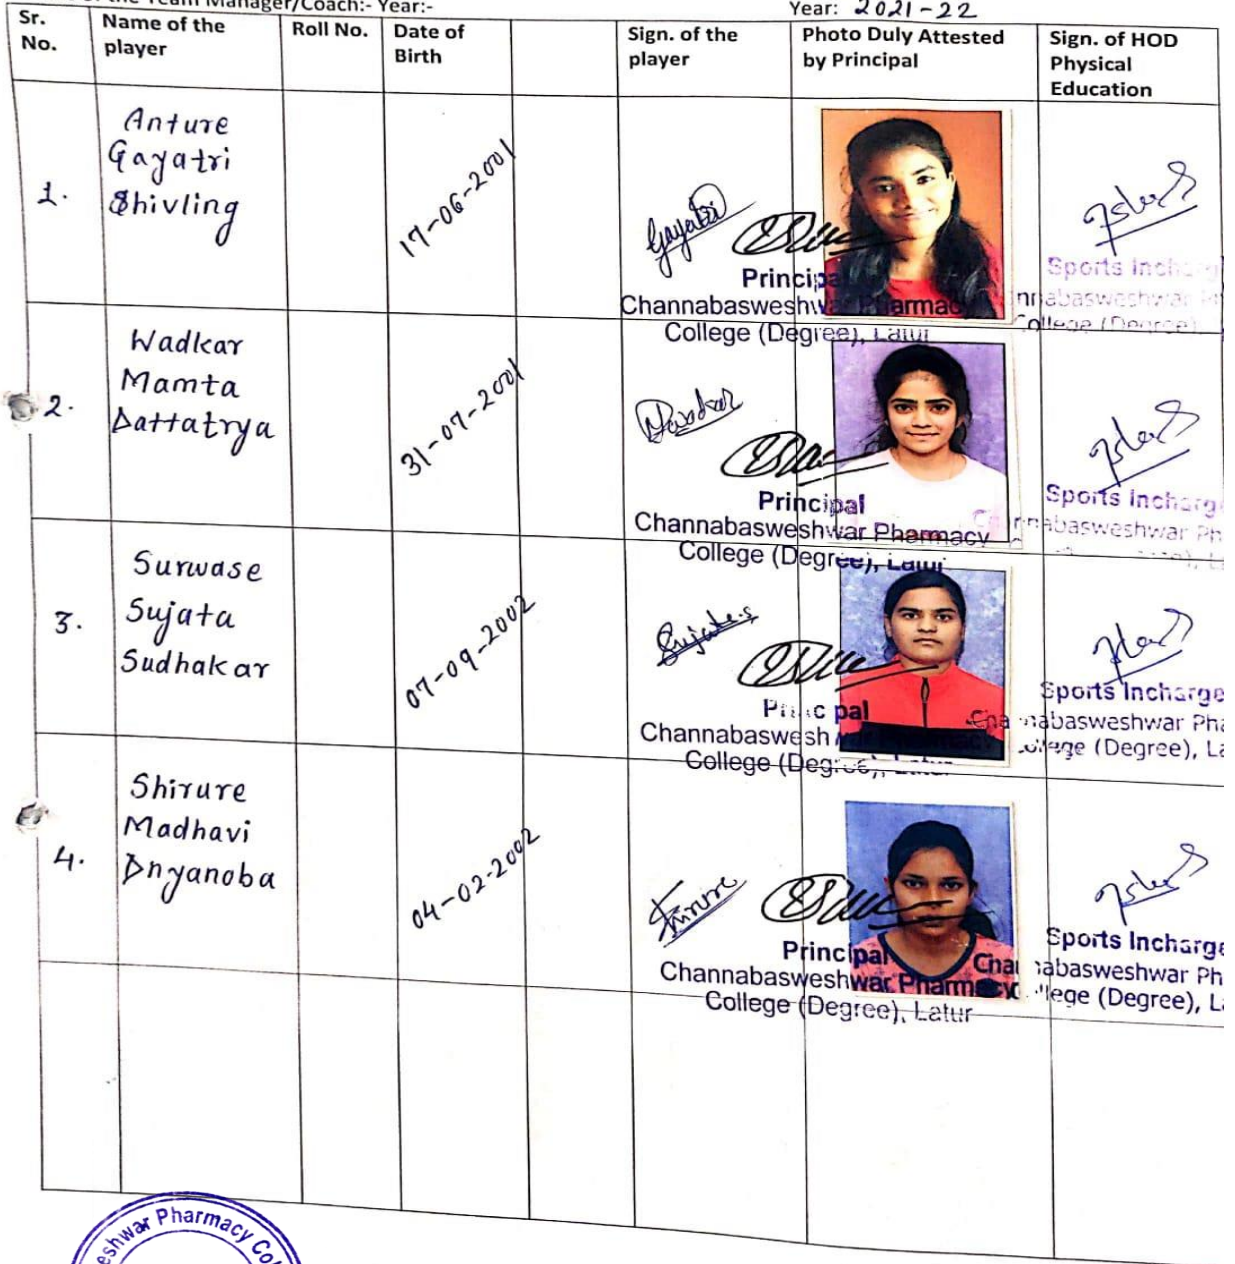 the Team Manager/Coach:- Year:-
Year: 2021-22
Sr. No.
Name of the player
Roll No.
Date of Birth
Sign. of the player
Photo Duly Attested by Principal
Sign. of HOD Physical Education
1.
Anture
Gayatri
Shivling
17-06-2001
Gayatri
Principal
Channabasweshwar Pharmacy
College (Degree), Latur
Sports Incharg
nnabasweshwar
College (Degree)
2.
Wadkar
Mamta
Dattatrya
31-07-2001
Wadkar
Principal
Channabasweshwar Pharmacy
College (Degree), Latur
Sports Incharge
nnabasweshwar Ph
3.
Surwase
Sujata
Sudhakar
07-09-2002
Sujata.S
Principal
Channabasweshwar Pharmacy
College (Degree), Latur
Sports Incharge
Channabasweshwar Pha
College (Degree), La
4.
Shirure
Madhavi
Dnyanoba
04-02-2002
Shirure
Principal
Channabasweshwar Pharmacy
College (Degree), Latur
Sports Incharge
Channabasweshwar Ph
College (Degree), La
eshwar Pharmacy Col